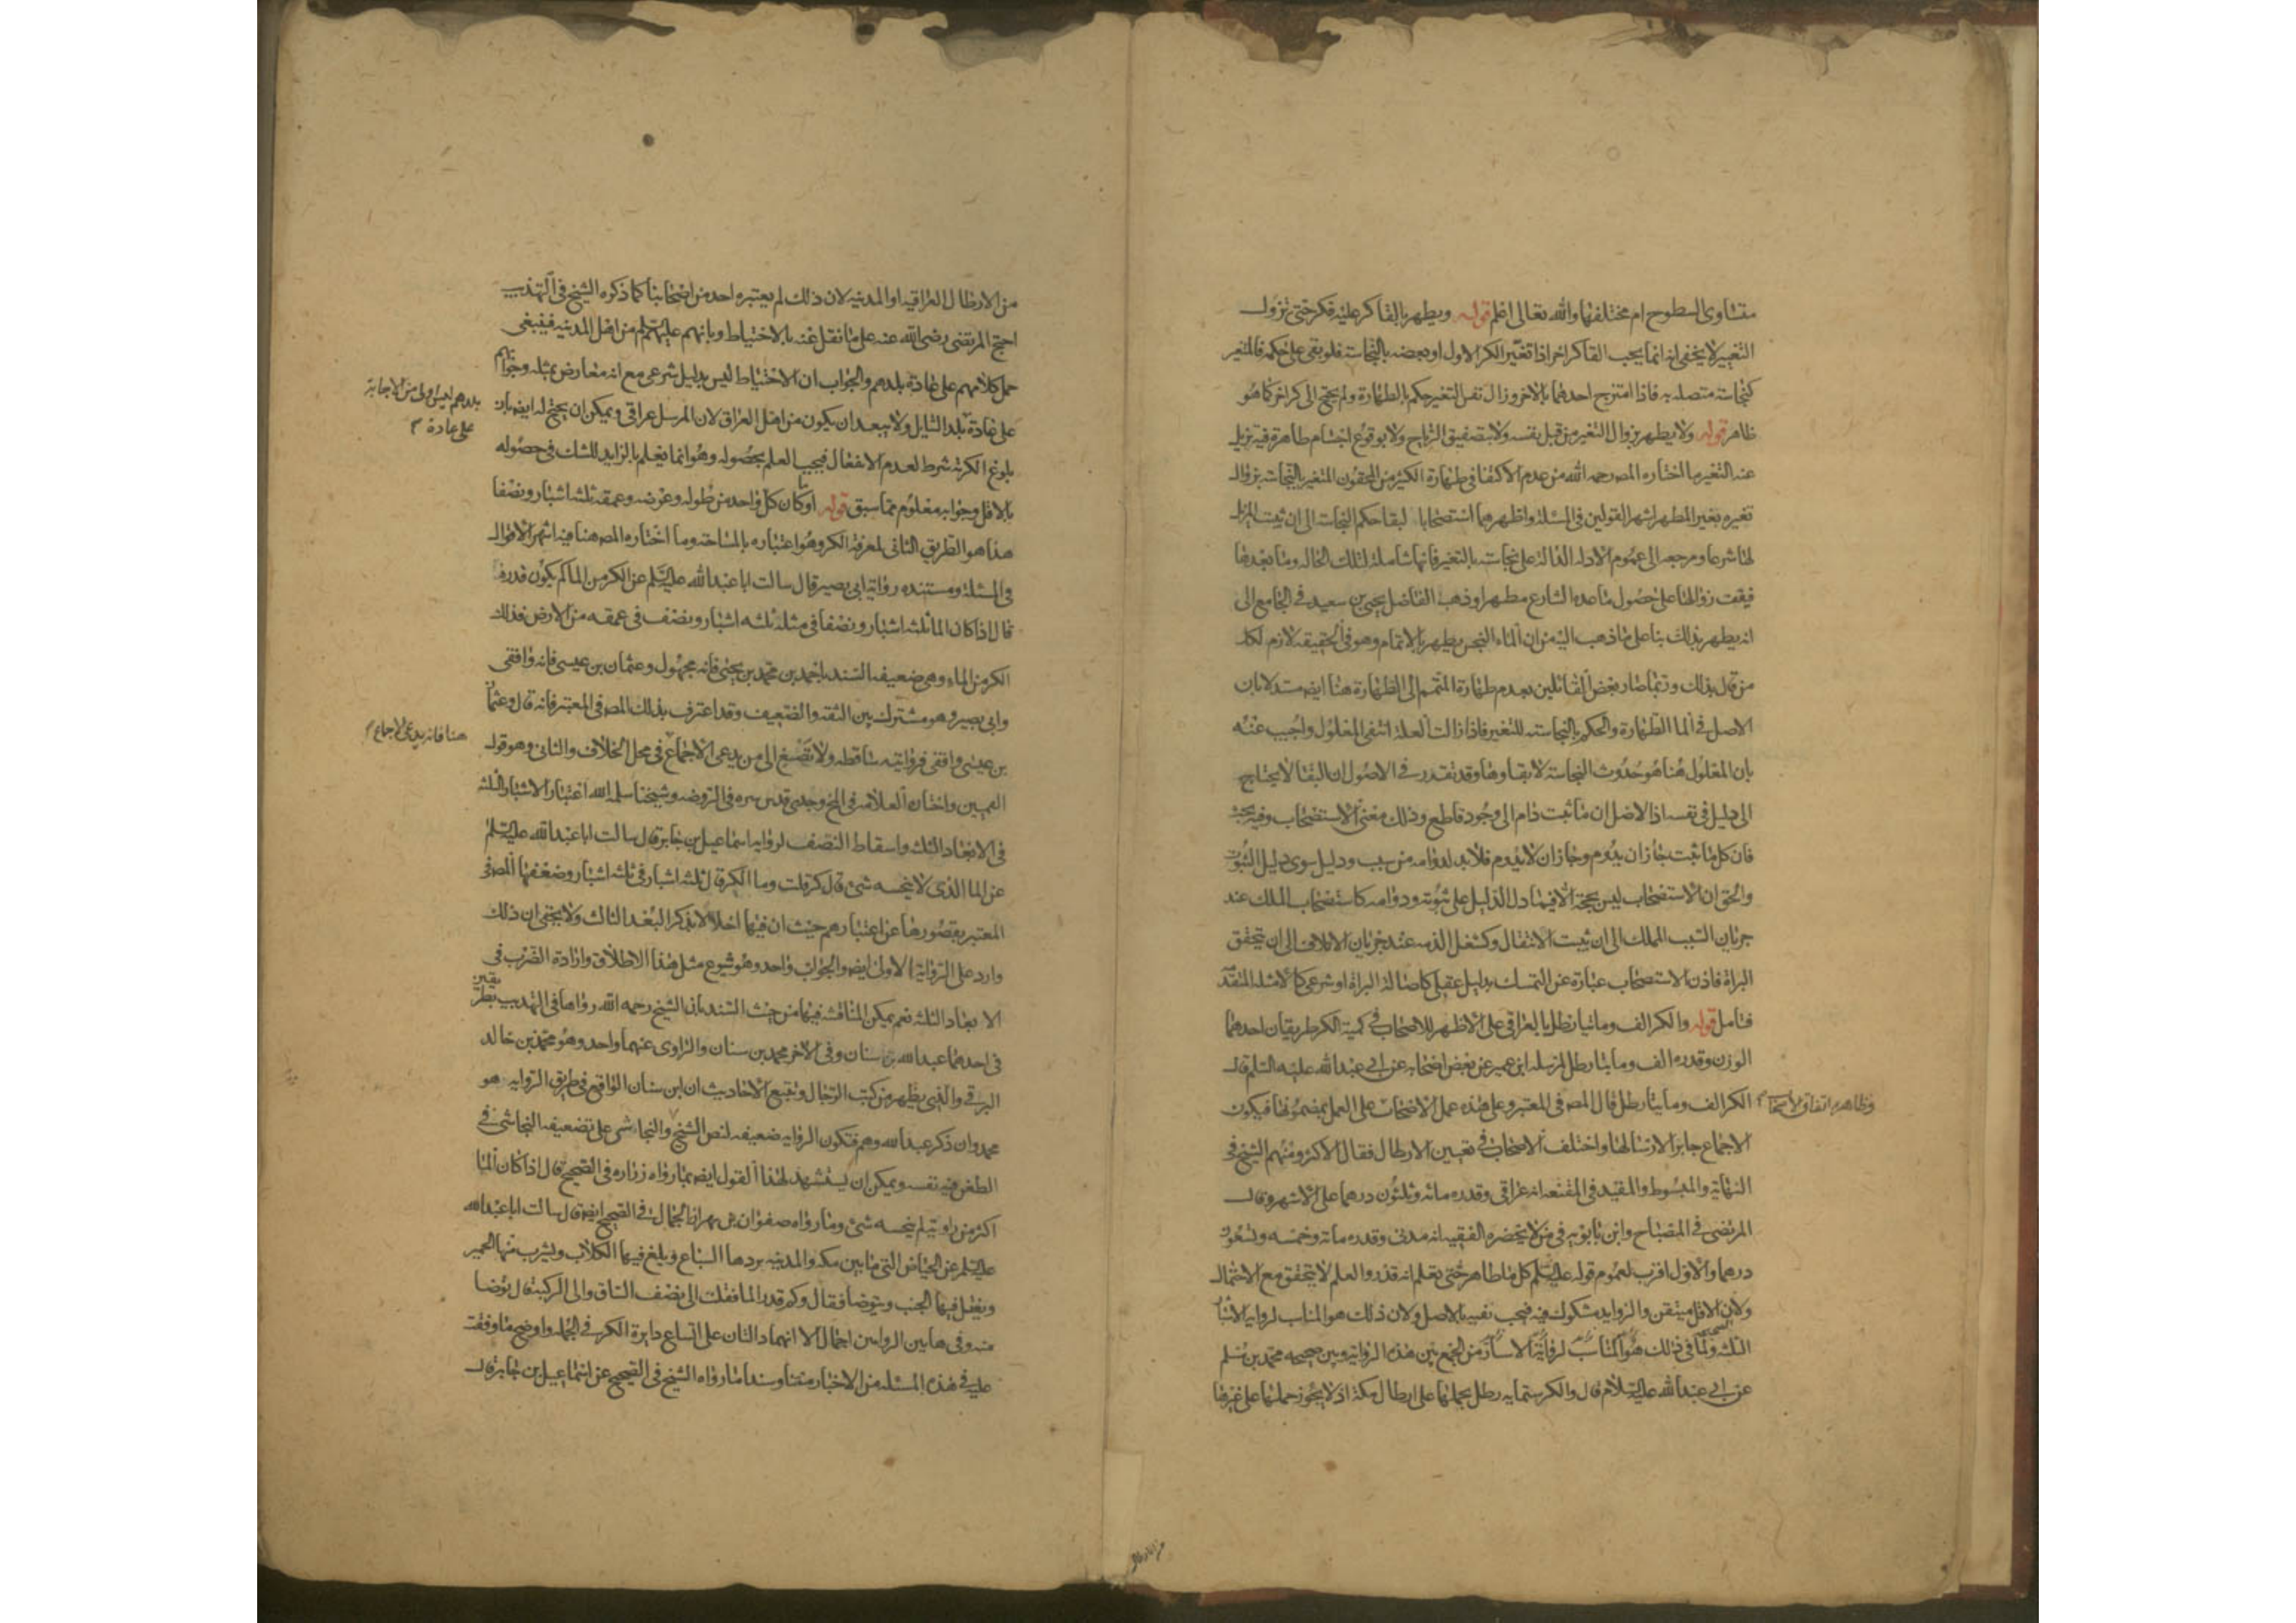 متساوى السطوح ام مختلفها والله تعالى اعلم قوله ويطهر بالقا كر عليه فكر حتى يزول
التغيير لا يخفى انه انما يجب القا كر اخر اذا تغير الكر الاول او بعضه بالنجاسة فلو بقى على حكمه فالمتغير
كنجاسة متصلة به فاذا امتزج احدهما بالاخر وزال نفس التغير حكم بالطهارة ولم يحتج الى كر اخر كما هو
ظاهر قوله ولا يطهر بزوال التغير من قبل نفسه ولا بتصفيق الرياح ولا بوقوع اجسام طاهرة فيه تزيل
عنه التغير ما اختاره المصر رحمه الله من عدم الاكتفا فى طهارة الكثير من المحقون المتغير بالنجاسة بزوال
تغيره بغير المطهر اشهر القولين فى المسئلة واظهرهما استصحابا لبقا حكم النجاسة الى ان يثبت المزيل
لها شرعا ومرجعه الى عموم الادلة الدالة على نجاسته بالتغير فانها شاملة لتلك الحالة وما بعدها
فيقف زوالها على حصول ما عده الشارع مطهرا وذهب الفاضل يحيى بن سعيد فى الجامع الى
انه يطهر بذلك بنا على ما ذهب اليه من ان الماء النجس يطهر بالاتمام وهو فى الحقيقة لازم لكل
من قال بذلك وربما صار بعض القائلين بعدم طهارة المتمم الى الطهارة هنا ايضه مستدلا بان
الاصل فى الما الطهارة والحكم بالنجاسة للتغير فاذا زالت العلة انتفى المعلول واجيب عنه
بان المعلول هنا هو حدوث النجاسة لا بقاوها وقد تقرر فى الاصول ان البقا لا يحتاج
الى دليل فى نفسه اذا الاصل ان ما ثبت دام الى وجود قاطع وذلك معنى الاستصحاب وفيه بحث
فان كل ما ثبت جاز ان يدوم وجاز ان لا يدوم فلا بد لدوامه من سبب ودليل سوى دليل الثبوت
والحق ان الاستصحاب ليس بحجة الا فيما دل الدليل على ثبوته ودوامه كاستصحاب الملك عند
جريان السبب المملك الى ان يثبت الانتقال وكشغل الذمة عند جريان الاتلاف الى ان يتحقق
البراة فاذن الاستصحاب عبارة عن التمسك بدليل عقلى كاصالة البراة او شرعى كالامثلة المتقدمة
فتامل قوله والكر الف ومائتا رطل بالعراقى على الاظهر للاصحاب فى كمية الكر طريقان احدهما
الوزن وقدره الف ومايتا رطل لمرسلة ابن عمير عن بعض اصحابه عن ابى عبد الله عليه السلم قال
الكر الف ومايتا رطل قال المصر فى المعتبر وعلى هذه عمل الاصحاب على العمل بمضمونها فيكون
وظاهره اتفاق الاصحاب
الاجماع جابرا لارسالها واختلف الاصحاب فى تعيين الارطال فقال الاكثر ومنهم الشيخ فى
النهاية والمبسوط والمفيد فى المقنعة انه عراقى وقدره مائة وثلثون درهما على الاشهر وقال
المرتضى فى المصباح وابن بابويه فى من لا يحضره الفقيه انه مدنى وقدره ماية وخمسة وتسعون
درهما والاول اقرب لعموم قوله عليه السلم كل ما طاهر حتى يعلم انه قذر والعلم لا يتحقق مع الاحتمال
ولان الاقل متيقن والزوايد مشكوك فيه فيجب نفيه بالاصل ولان ذلك هو المناسب لرواية الاشبار
الثلثة ولما فى ذلك من الجمع بين هذه الرواية وبين صحيحة محمد بن مسلم
عن ابى عبد الله عليه السلام قال والكر ستمايه رطل بحملها على ارطال مكة اذ لا يجوز حملها على غيرها
من الارطال العراقية او المدنية لان ذلك لم يعتبره احد من اصحابنا كما ذكره الشيخ فى التهذيب
احتج المرتضى رضى الله عنه على ما نقل عنه بالاحتياط وبانهم عليهم السلم من اهل المدينة فينبغى
حمل كلامهم على عادة بلدهم والجواب ان الاحتياط ليس بدليل شرعى مع انه معارض بمثله وجوابهم
بلدهم ليس اولى من الاجابة
على عادة
على عادة بلد السايل ولا يبعد ان يكون من اهل العراق لان المرسل عراقى ويمكن ان يحتج له ايضه بان
بلوغ الكرية شرط لعدم الانفعال فيجب العلم بحصوله وهو انما يعلم بالزايد للشك فى حصوله
بالاقل وجوابه معلوم مما سبق قوله او كان كل واحد من طوله وعرضه وعمقه ثلثة اشبار ونصفا
هذا هو الطريق الثانى لمعرفة الكر وهو اعتباره بالمساحة وما اختاره المصر هنا فيه اشهر الاقوال
فى المسئلة ومستنده رواية ابى بصير قال سالت ابا عبد الله عليه السلم عن الكر من الما كم يكون قدره
قال اذا كان الما ثلثة اشبار ونصفا فى مثله ثلثه اشبار ونصف فى عمقه من الارض فذلك
الكر من الماء وهى ضعيفة السند باحمد بن محمد بن يحيى فانه مجهول وعثمان بن عيسى فانه واقفى
وابى بصير وهو مشترك بين الثقة والضعيف وقد اعترف بذلك المصر فى المعتبر فانه قال وعثمان
بن عيسى واقفى فروايته ساقطة ولا تصغ الى من يدعى الاجماع فى محل الخلاف والثانى وهو قول
هنا فانه يدعى الاجماع
القميين واختاره العلامة فى المخ وجدى قدس سره فى الروضه وشيخنا سلمه الله اعتبار الاشبار الثلثة
فى الابعاد الثلثة واسقاط النصف لرواية اسماعيل بن جابر قال سالت ابا عبد الله عليه السلم
عن الما الذى لا ينجسه شئ قال كر قلت وما الكر قال ثلثه اشبار فى ثلثه اشبار وضعفها المصر فى
المعتبر بقصورها عن اعتبارهم حيث ان فيها اخلالا بذكر البعد الثالث ولا يخفى ان ذلك
وارد على الرواية الاولى ايضه والجواب واحد وهو شيوع مثل هذا الاطلاق وارادة الضرب فى
الابعاد الثلثة نعم يمكن المناقشة فيها من حيث السند بان الشيخ رحمه الله رواها فى التهذيب بطريقين
فى احدهما عبد الله بن سنان وفى الاخر محمد بن سنان والراوى عنهما واحد وهو محمد بن خالد
البرقى والذى يظهر من كتب الرجال وتتبع الاحاديث ان ابن سنان الواقع فى طريق الرواية هو
محمد وان ذكر عبد الله وهم فتكون الرواية ضعيفة لنص الشيخ والنجاشى على تضعيفه
الطعن فيه نفسه ويمكن ان يستشهد لهذا القول ايضه بما رواه زراره فى الصحيح قال اذا كان الما
اكثر من راوية لم ينجسه شئ وما رواه صفوان بن مهران الجمال فى الصحيح ايضه قال سالت ابا عبد الله
عليه السلم عن الحياض التى ما بين مكة والمدينة يردها السباع ويلغ فيها الكلاب ويشرب منها الحمير
ويغتسل فيها الجنب ويتوضا فقال وكم قدر الما فقلت الى نصف الساق والى الركبة قال توضا
منه وفى هاتين الروايتين اجمال الا انهما دالتان على اتساع دايرة الكر فى الجملة واوضح ما وقفت
عليه فى هذه المسئلة من الاخبار متنا وسندا ما رواه الشيخ فى الصحيح عن اسماعيل بن جابر قال